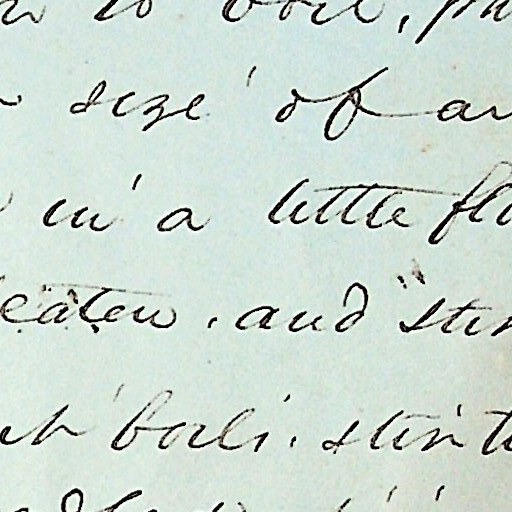 to boil,
size of an
in a little
eaten, and stir
boil, stir